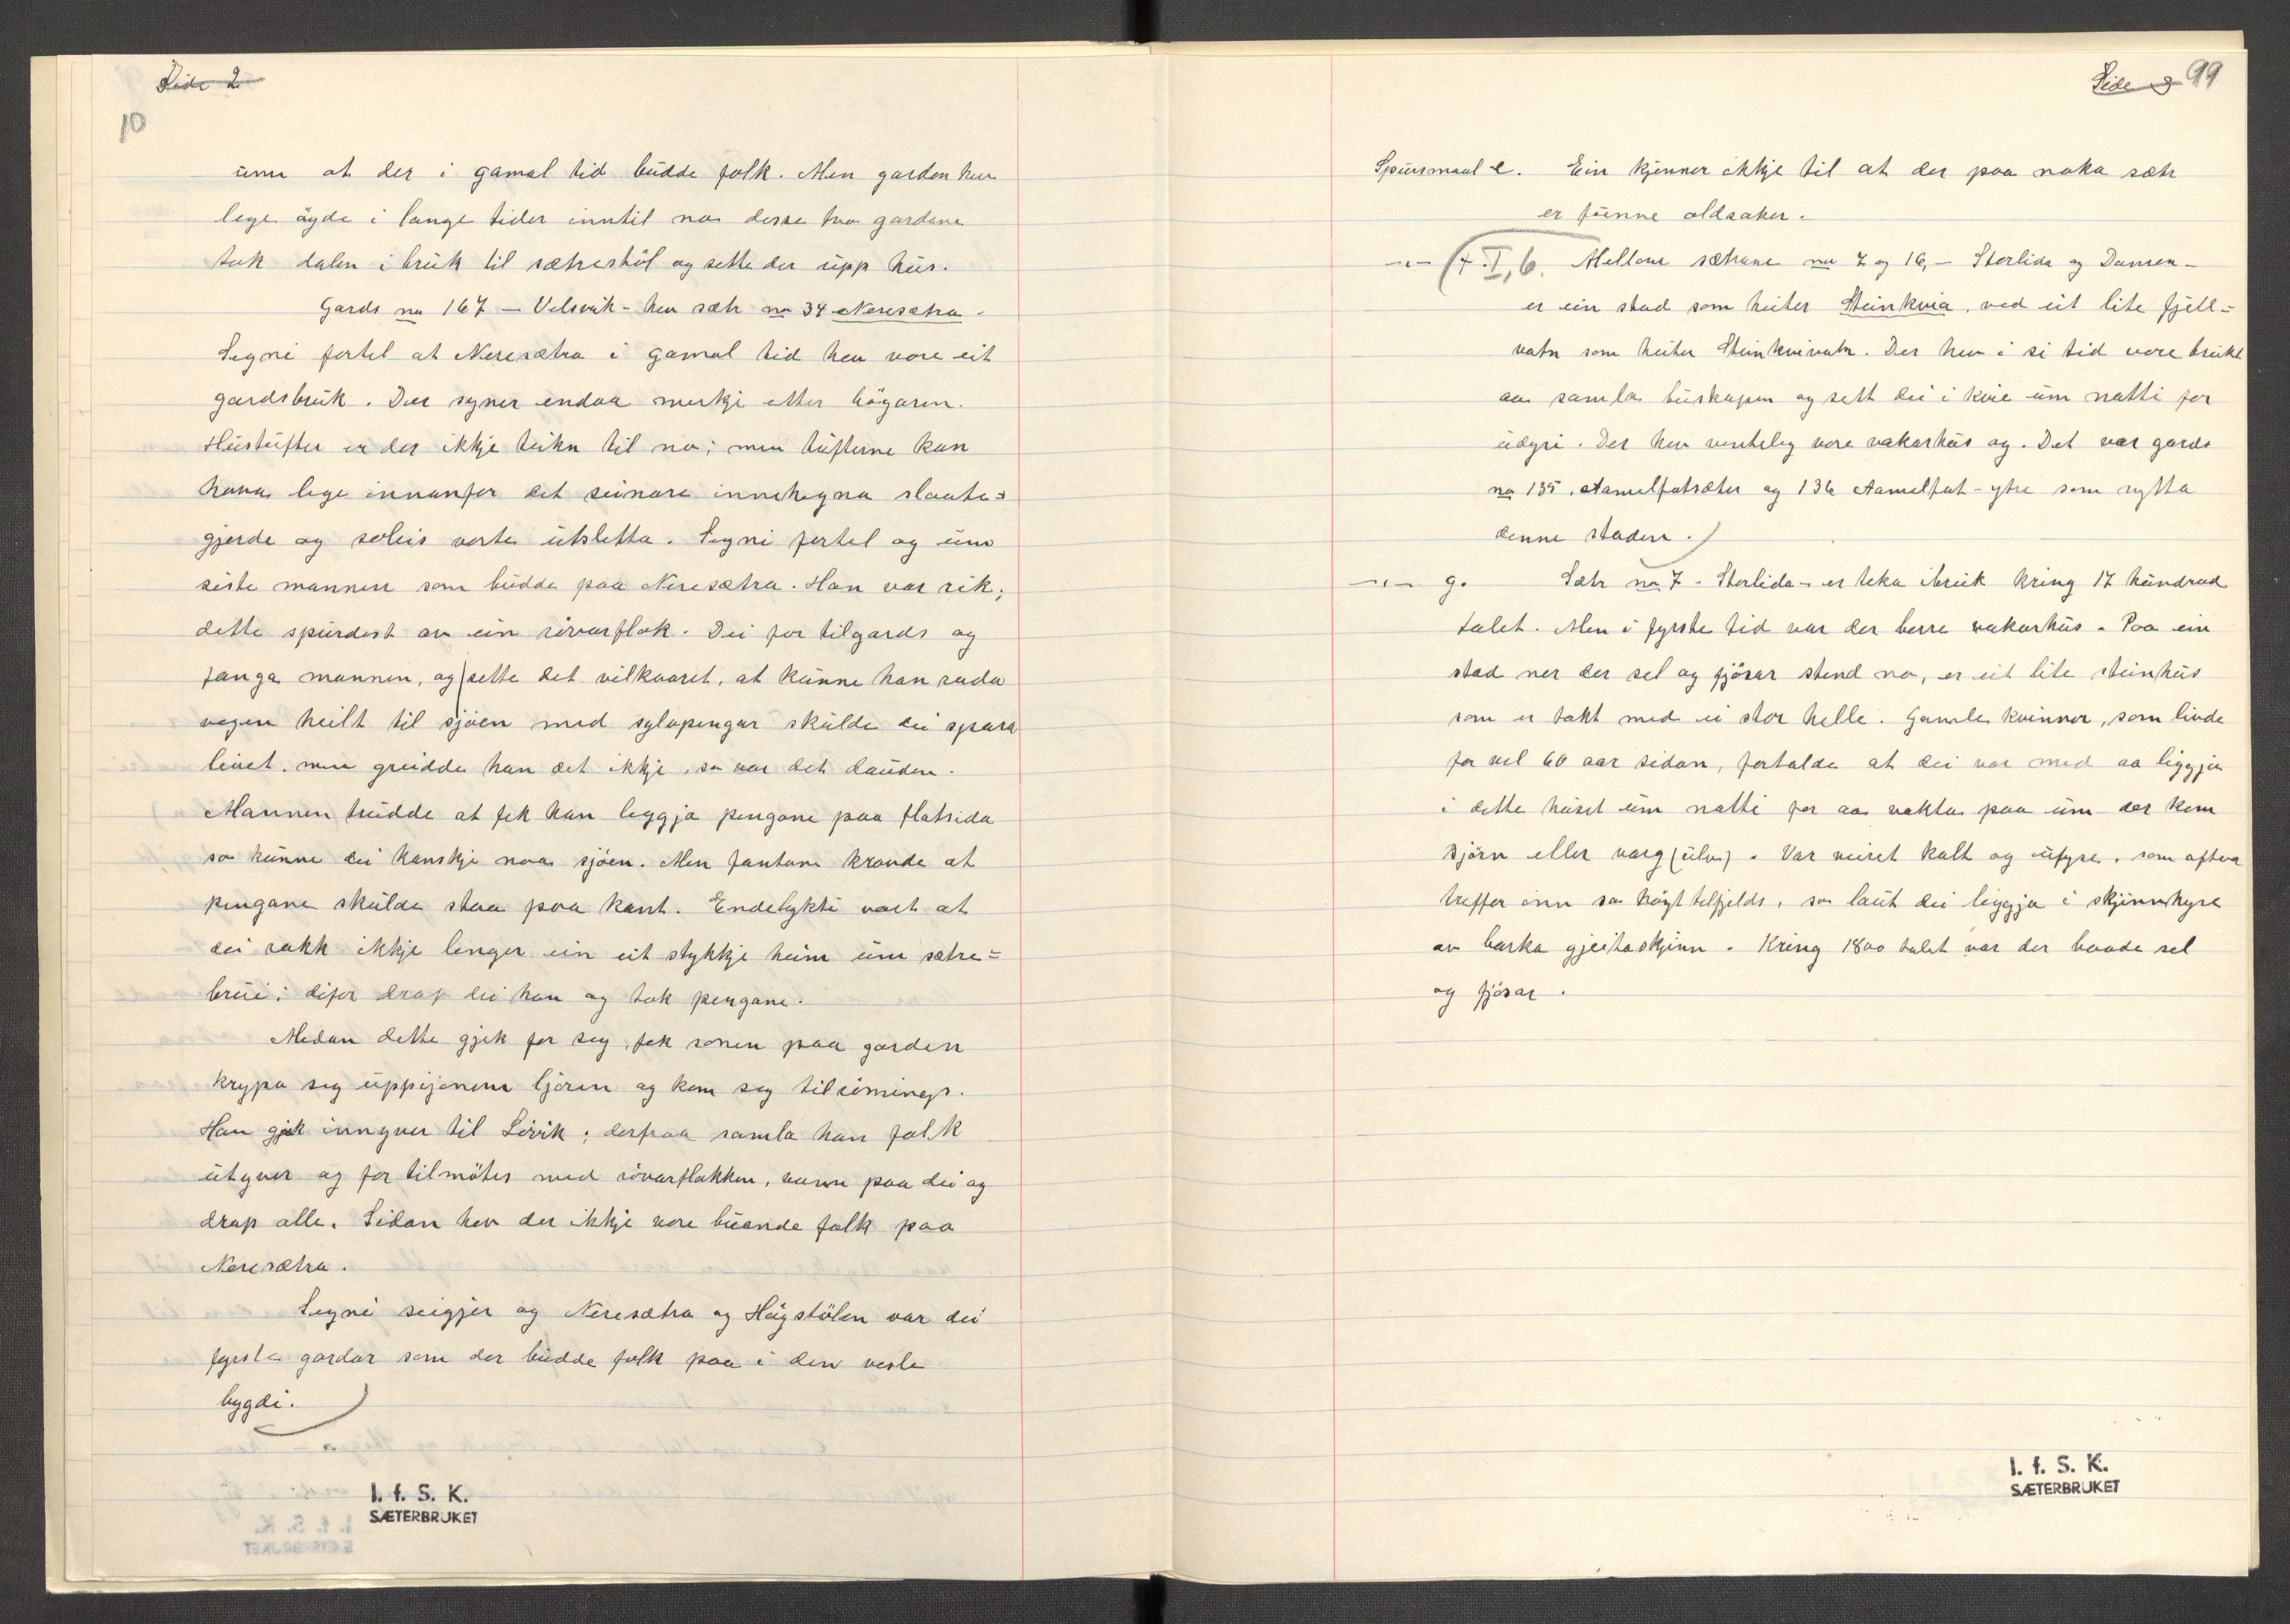 Side 2
10
um at der i gamal tid budde folk. Men garden hev
lege øyde i lange tider inntil no desse two gardane
tok dalen i bruk til sætrestøl og sette der upp hus.
Gards no 167 — Velsvik - hev sætr no 34 Neresætra.
Segni fortel at Neresætra i gamal tid hev vore eit
gardsbruk. Der syner endaa merkji etter høgaren.
Hustufter er der ikkje teikn til no; men tufterne kan
hava lege innanfor det seinare innehegna slaatte=
gjerde og soleis verte utsletta. Segni fertel og um
siste mannen som budda paa Neresætra. Han var rik;
dette spurdest av ein røvarflok. Dei for tilgards og
fanga mannen, og sette det vilkaaret, at kunne han rada
vegen heilt til sjøen med sylvpengar skulde dei spara
livet. men greidde han det ikkje, so var det dauden.
Mannen trudde at fek han leggja pengane paa flatsida
so kunne dei kanskje naa sjøen. Men fantane kravde at
pengane skulde staa paa kant. Endelykti vart at
dei rakk ikkje lenger ein eit stykkje heim um sætre=
brui; difor drap dei han og tok pengane.
Medan dette gjek for seg, fek sonen paa garden
krypa seg uppigjenom ljoren og kom seg tilrømings.
Han gjek innyver til Løvik; derfraa samla han folk
utyver og for tilmøtes med røvarflokken, vann paa dei og
drap alle. Sidan hev der ikkje vore buande folk paa
Neresætra.
Segni seigjer og Neresætra og Høgstølen var dei
fyrste gardar som der budde folk paa i den vesle
bygdi.
I. f. S. K.
SÆTERBRUKET
Side 3 99
Spursmaal e. Ein kjenner ikkje til at der paa noka sætr
er funne oldsaker.
—"— f. I, 6. Mellom sætrane no 7 og 16, — Storlida og Dansen —
er ein stad som heiter Steinkvia, ved eit lite fjell=
vatn som heiter Steinkvivatn. Der hev i si tid vore brukt
aa samla buskapen og sett dei i kvie um natti for
udyri. Der hev venteleg vore vakarhus og. Det var gards
no 135, Aamelfotsæter og 136 Aamelfot-ytre som nytta
denne staden.)
—"— g. Sætr no 7 - Storlida - er teka ibruk kring 17 hundrad
talet. Men i fyrste tid var der berre vakarhus. Paa ein
stad ner der sel og fjøsar stend no, er eit lite steinhus
som er takt med ei stor helle. Gamle kvinnor, som livde
for vel 60 aar sidan, fortalde at dei var med aa liggja
i dette huset um natti for aa vakta paa um der kom
Bjørn eller varg (ulv). Var veiret kalt og ufyse, som oftera
treffer inn so høgt tilfjelds, so laut dei liggja i skjinnhyra
av barka gjeitaskjinn. Kring 1800 talet var der baade sel
og fjøsar.
I. f. S. K.
SÆTERBRUKET